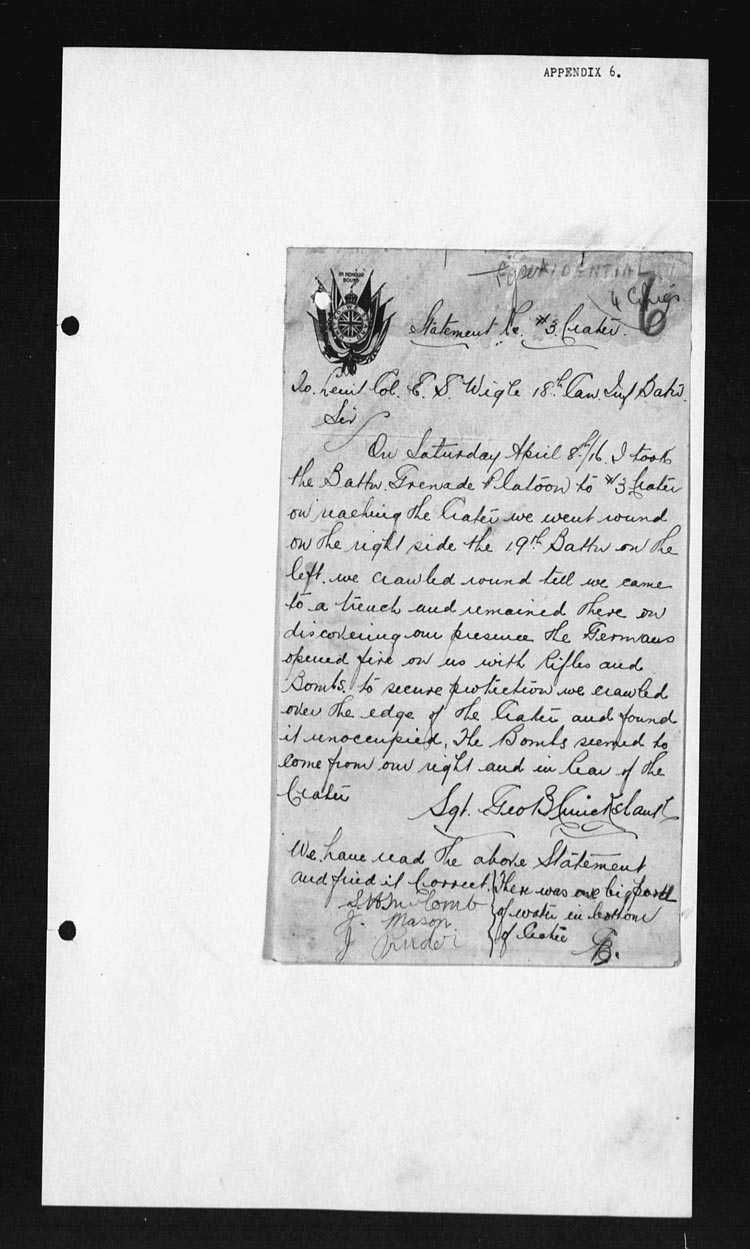 APPENDIX 6.
IN HONOUR
BOUND
CONFIDENTIAL
6
Statement Re. #3. Crater.
To. Leiut Col. E. S. Wigle 18th Can. Inf Battn.
Sir
On Saturday April 8th/16. I took
the Battn. Grenade Platoon to #3. Crater
on reaching the Crater we went round
on the right side the 19th Battn on the
left. we crawled round till we came
to a trench and remained there on
discovering our presence the Germans
opened fire on us with Rifles and
Bombs. to secure protection we crawled
over the edge of the Crater and found
it unoccupied. The Bombs seemed to
come from our right and in rear of the
Crater
Sgt. Geo B
We have read the above Statement
and find it Correct.
There was one big pool
of water in bottom
of Crater
S. H McComb
J. Mason.
J
B.